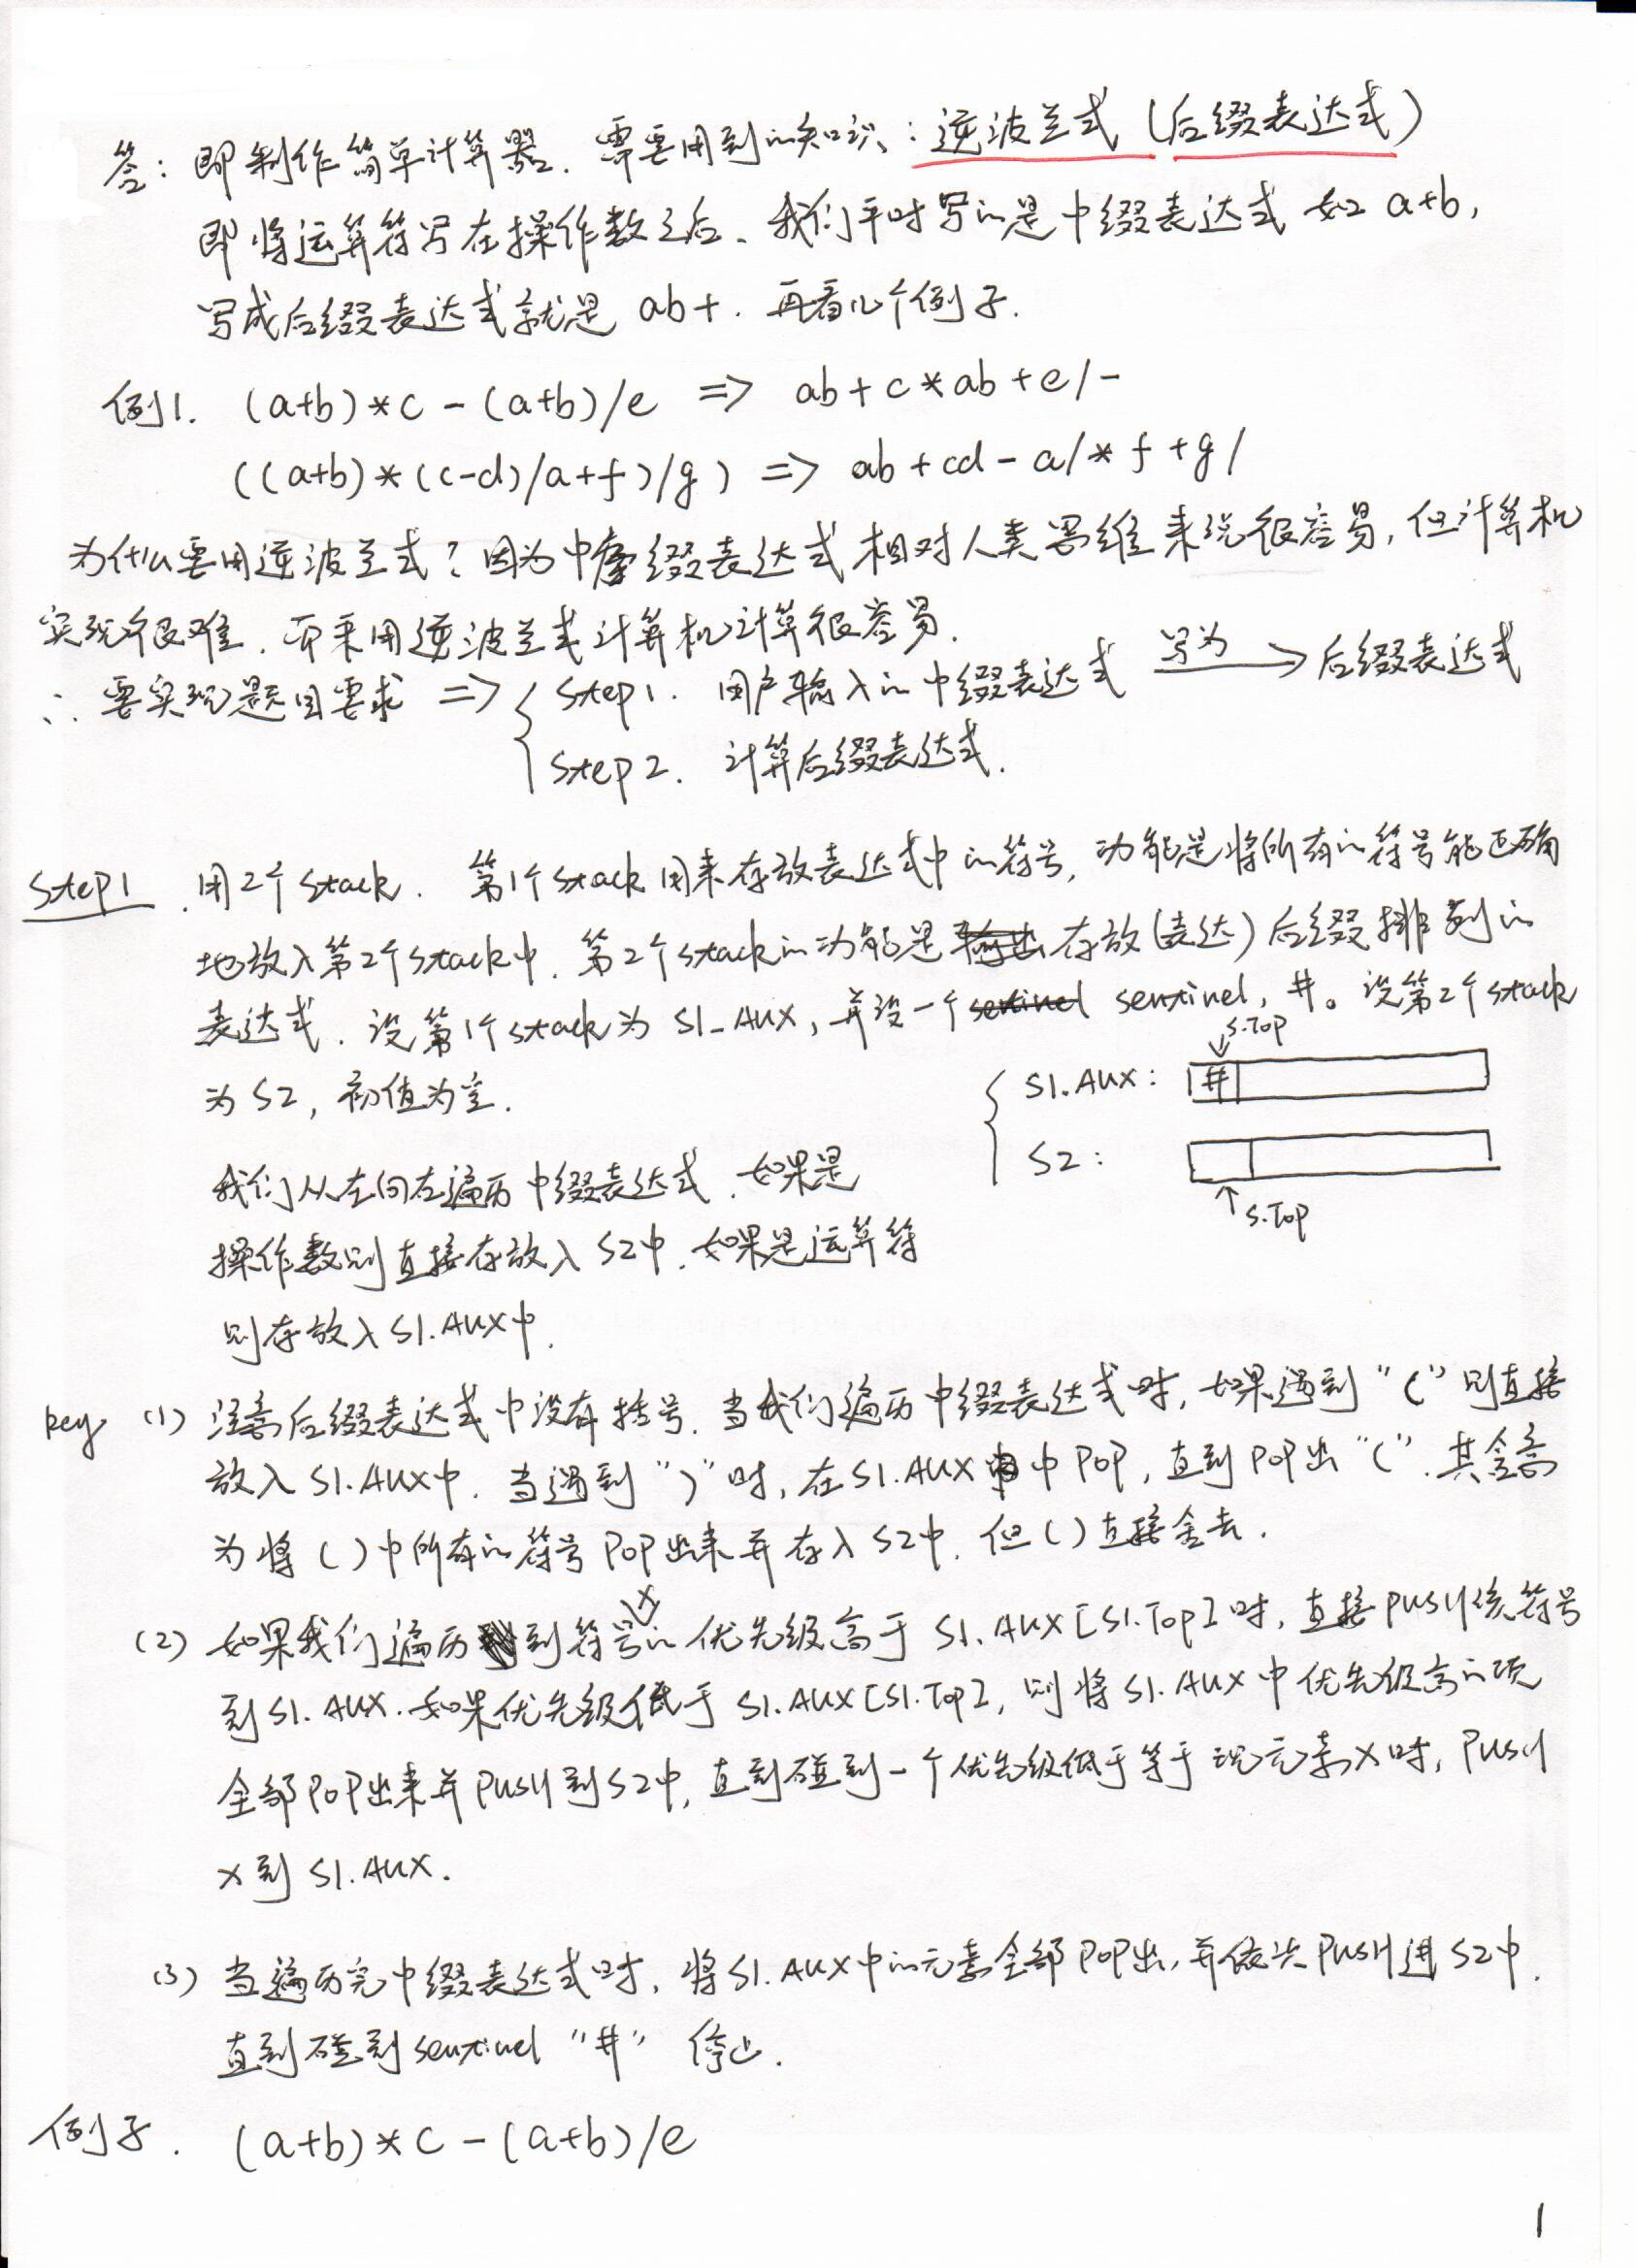 答：即制作简单计算器．需要用到的知识：逆波兰式（后缀表达式）
即将运算符写在操作数之后、我们平时写的是中缀表达式 如 a+b,
写成后缀表达式就是 ab+. 再看几个例子.
例1. (a+b)*c-(a+b)/e => ab+c*ab+e/-
((a+b)*(c-d)/a+f)/g) => ab+cd-a/*f+g/
为什么要用逆波兰式？因为中缀表达式相对人类思维来说很容易, 但计算机
实现很难. 而采用逆波兰式计算机计算很容易.
∴ 要实现题目要求 => { Step1. 用户输入的中缀表达式 写为→ 后缀表达式
Step2. 计算后缀表达式.
Step1. 用2个stack. 第1个stack用来存放表达式中的符号, 功能是将所有的符号能正确
地放入第2个stack中. 第2个stack的功能是存放(表达)后缀排列的
表达式. 设第1个stack为 S1_AUX, 并设一个 sentinel, #。设第2个stack
为 S2, 初值为空.
S.Top
S1.AUX: #
S2:
S.Top
我们从左向右遍历中缀表达式. 如果是
操作数则直接存放入 S2中. 如果是运算符
则存放入 S1.AUX中.
key (1) 注意后缀表达式中没有括号. 当我们遍历中缀表达式时, 如果遇到 "(" 则直接
放入 S1.AUX中. 当遇到 ")" 时, 在 S1.AUX中 POP, 直到 POP出 "(". 其含意
为将 ( ) 中所有的符号 POP出来并存入 S2中. 但 ( ) 直接舍去.
(2) 如果我们遍历到符号x的优先级高于 S1.AUX[S1.Top]时, 直接PUSH该符号
到 S1.AUX. 如果优先级低于 S1.AUX[S1.Top], 则将 S1.AUX中优先级高的项
全部POP出来并PUSH到S2中, 直到碰到一个优先级低于等于现元素x时, PUSH
x到 S1.AUX.
(3) 当遍历完中缀表达式时, 将S1.AUX中的元素全部POP出, 并依次PUSH进S2中.
直到碰到 sentinel "#" 停止.
例子. (a+b)*c-(a+b)/e
1